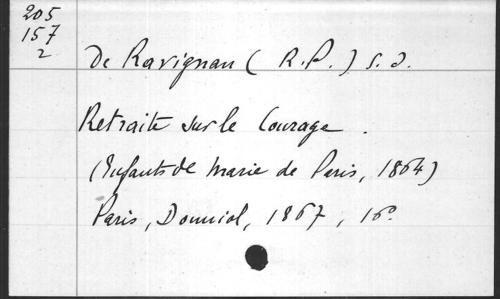 205
157
2
De Ravignan (R.P.) S.J.
Retraite sur le Courage.
(Enfants de Marie de Paris, 1864)
Paris, Douniol, 1867, 16º